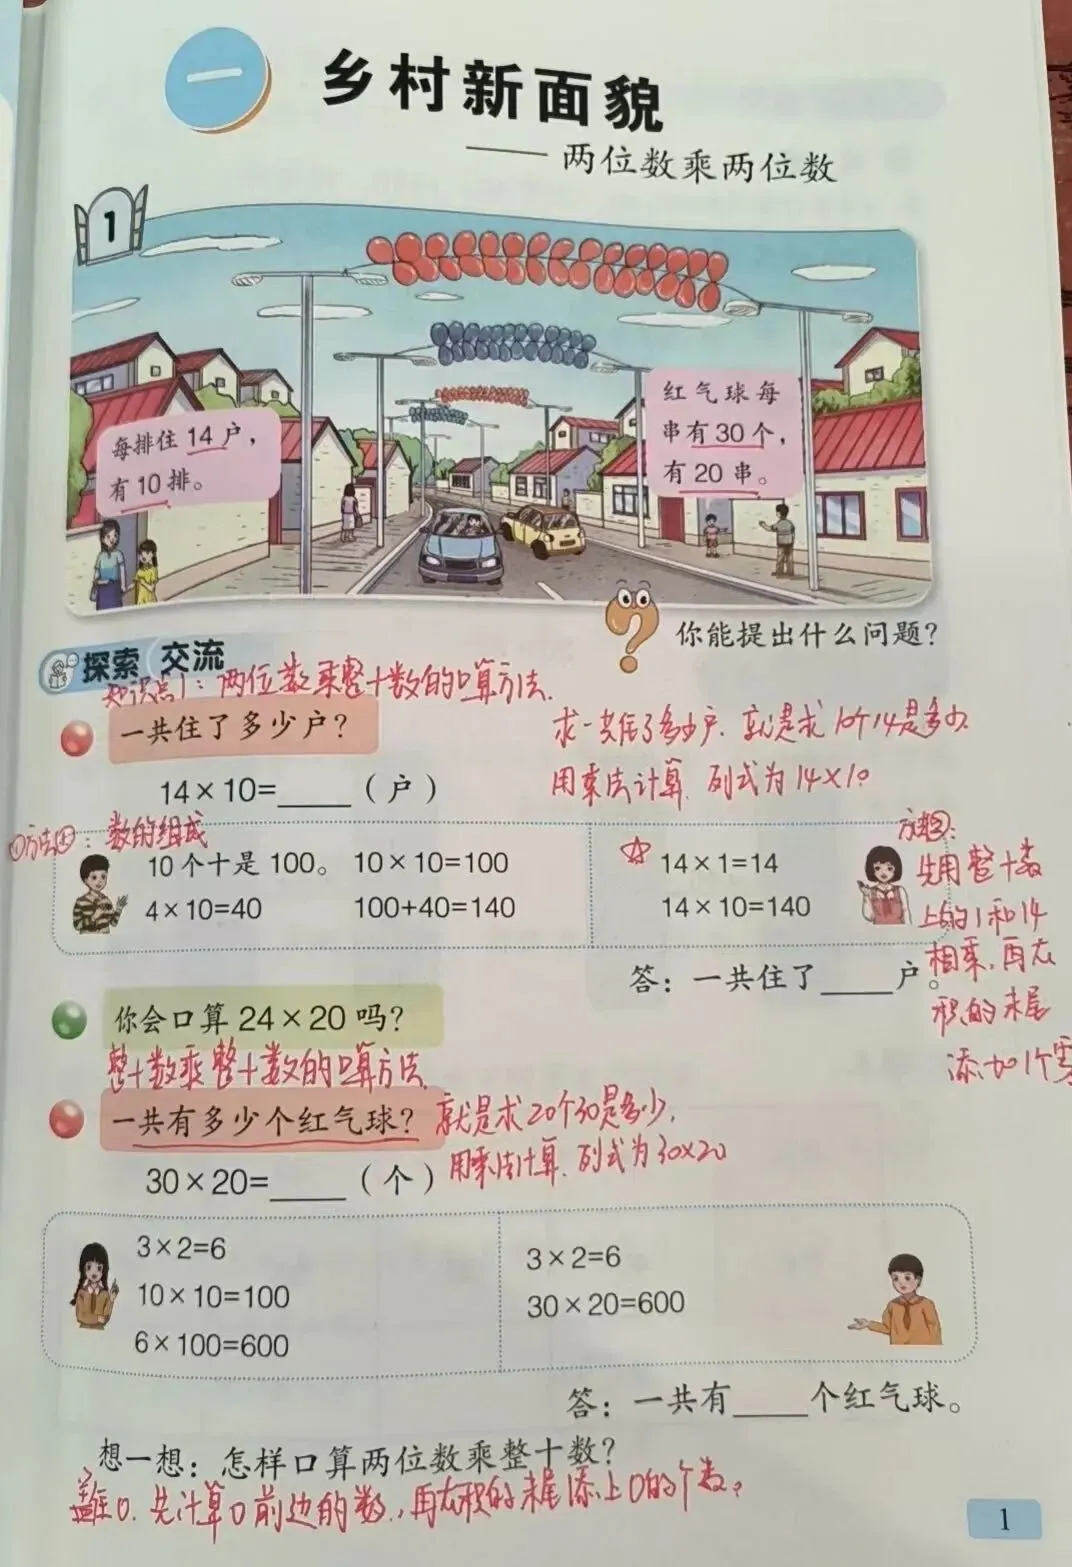 一
乡村新面貌
—— 两位数乘两位数
1
每排住14户，
有10排。
红气球每
串有30个，
有20串。
你能提出什么问题？
探索 交流
知识点1：两位数乘整十数的口算方法.
一共住了多少户？
求一共住了多少户.就是求10个14是多少.
14×10=____（户）
用乘法计算.列式为14×10
①方法①：数的组成
10个十是100。 10×10=100
4×10=40 100+40=140
☆ 14×1=14
14×10=140
方法②：
先用整十数
上的1和14
相乘.再在
积的末尾
添加1个零
答：一共住了____户。
你会口算24×20吗？
整十数乘整十数的口算方法.
一共有多少个红气球？
就是求20个30是多少.
30×20=____（个）
用乘法计算.列式为30×20
3×2=6
10×10=100
6×100=600
3×2=6
30×20=600
答：一共有____个红气球。
想一想：怎样口算两位数乘整十数？
盖住0.先计算0前边的数.再在积的末尾添上0的个数。
1